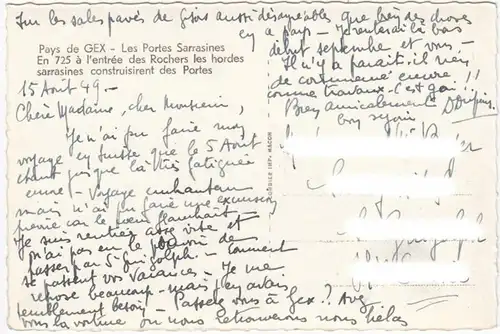 Sur les sales pavés de Gex aussi désagréables que bien des choses
en ce pays - J'enterai là bas
début septembre et vous -
Il n'y a paraît il rien
de commencé encore !!
comme travaux - C'est gai !!
Bien amicalement
bon séjour
Pays de GEX - Les Portes Sarrasines
En 725 à l'entrée des Rochers les hordes
sarrasines construisirent des Portes
15 Août 49 -
Chère Madame, cher Monsieur,
Je n'ai pu faire mon
voyage en Suisse que le 5 Août
étant jusque là très fatiguée
- Voyage enchanteur
mais n'ai pu faire une excursion
car le cœur flanchait
Je suis rentrée assez vite et
n'ai pas eu le pouvoir de
passer par St Gingolph - Comment
se passent vos vacances - Je me
repose beaucoup - mais j'en avais
tellement besoin - Passerez vous à Gex ? Avez
vous la voiture où nous retrouverons nous hélas